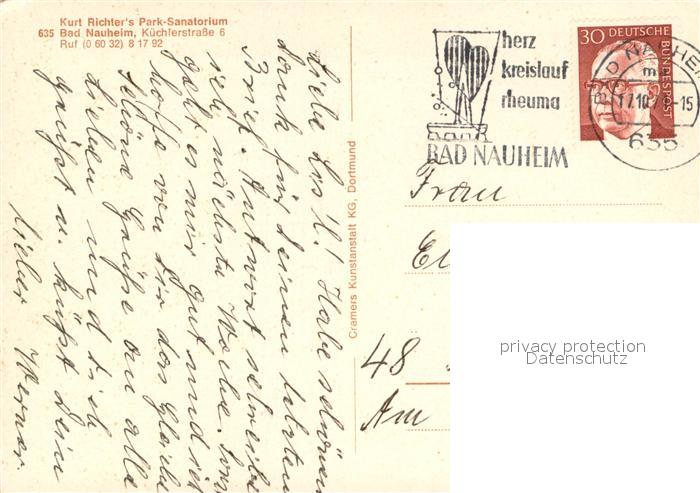 Kurt Richter's Park-Sanatorium
635 Bad Nauheim, Küchlerstraße 6
Ruf (0 60 32) 8 17 92
Liebe Lis'l! Habe schönen
Dank für Deinen letzten
Brief. Antwort schreibe
ich nächste Woche. Sonst
geht es mir gut und ich
hoffe von Dir das Gleiche
Schöne Grüße an alle
Lieben und Dich
grüßt u. küßt Dein
lieber Werner
Cramers Kunstanstalt KG, Dortmund
herz
kreislauf
rheuma
BAD NAUHEIM
30 DEUTSCHE
BUNDESPOST
BAD NAUHEIM
17.10.
-15
635
Frau
El
48
Am
privacy protection
Datenschutz